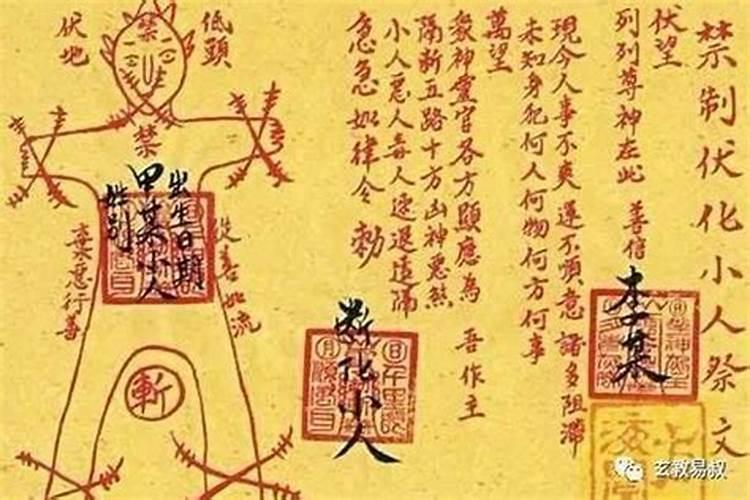 禁制伏化小人祭文
伏望
列列尊神在此 善信 李某
現今人事不爽 運不順意 諸多阻滯
未知身犯何人何物何方何事
萬望
眾神靈官各方顯應為 吾作主
隔斷五路十方凶神惡煞
小人惡人毒人速退遠隔
急急如律令 勅
断化小人
低頭
伏地
禁
禁
出生日期
甲某小人
性别
從善如流
棄惡行善
斬
玄教易叔